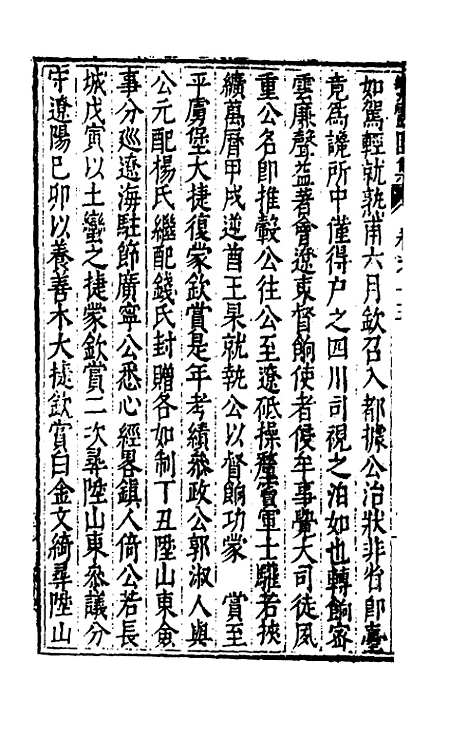 如駕輕就熟甫六月欽召入都據公治狀非省即臺
竟為讒所中僅得戶之四川司視之泊如也轉餉密
雲廉聲益著會遼東督餉使者侵牟事覺大司徒風
重公名即推轂公往公至遼砥操釐蠹軍士驩若挾
纊萬曆甲戌逆酋王杲就執公以督餉功蒙 賞至
平虜堡大捷復蒙欽賞是年考績參政公郭淑人與
公元配楊氏繼配錢氏封贈各如制丁丑陞山東僉
事分巡遼海駐節廣寧公悉心經畧鎮人倚公若長
城戊寅以土蠻之捷蒙欽賞二次尋陞山東參議分
守遼陽己卯以養善木大捷欽賞白金文綺尋陞山